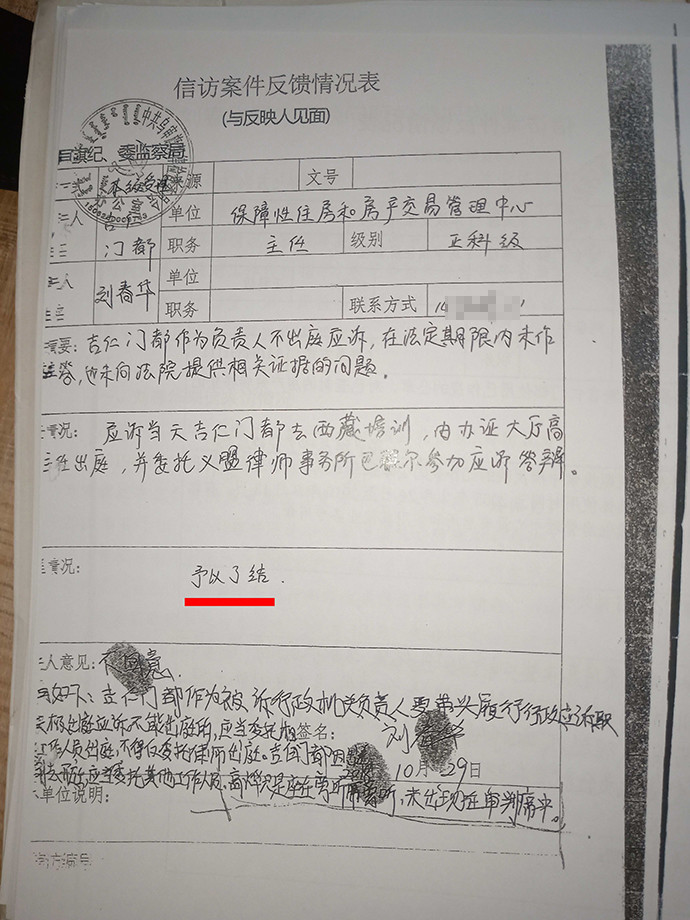 信访案件反馈情况表
(与反映人见面)
旗纪、委监察局
来源
文号
单位
保障性住房和房产交易管理中心
门都
职务
主任
级别
正科级
人
刘春华
单位
职务
联系方式
摘要：吉仁门都作为负责人不出庭应诉，在法定期限内未作
答，也未向法院提供相关证据的问题。
情况：
应诉当天吉仁门都去西藏培训，由办证大厅高
出庭，并委托义盟律师事务所巴雅尔参加应诉答辩。
情况：
予以了结.
人意见：
不同意
如下：吉仁门都作为被诉行政机关负责人要带头履行行政应诉职
出庭应诉不能出庭的，应当委托
签名：
刘春华
工作人员出庭，不得仅委托律师出庭。吉仁门都因
10月29日
应当委托其他工作人员。
未出现在审判席中。
单位说明：